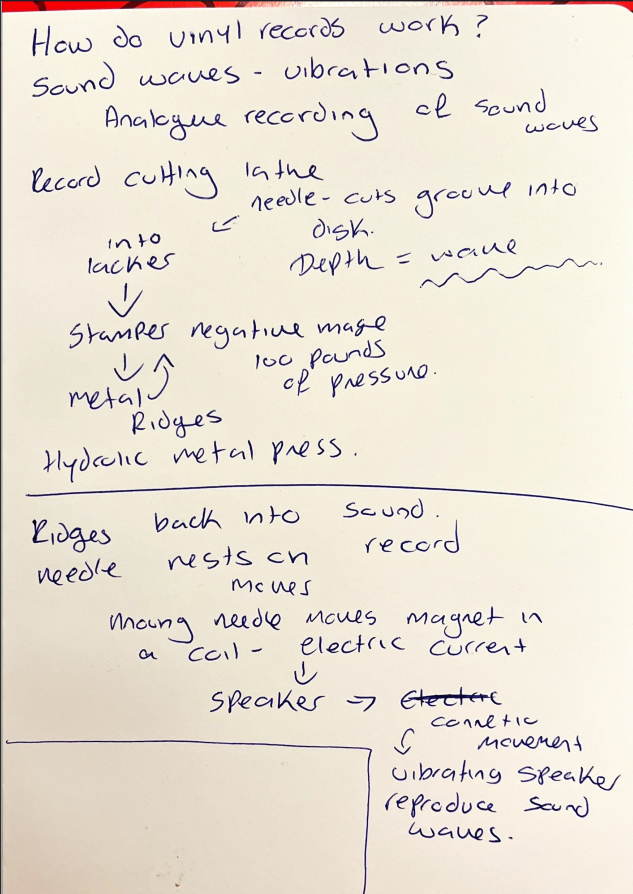 How do vinyl records work?
Sound waves - vibrations
Analogue recording of sound
waves
Record cutting lathe
needle - cuts groove into
disk.
into
lacker
Depth = wave
↓
Stamper negative mage
↓ 100 pounds
of pressure.
metal
Ridges
Hydralic metal press.
Ridges back into sound.
needle rests on record
moves
Moving needle moves magnet in
a coil - electric current
↓
Speaker → Electric
connetic
movement
vibrating speaker
reproduce sound
waves.